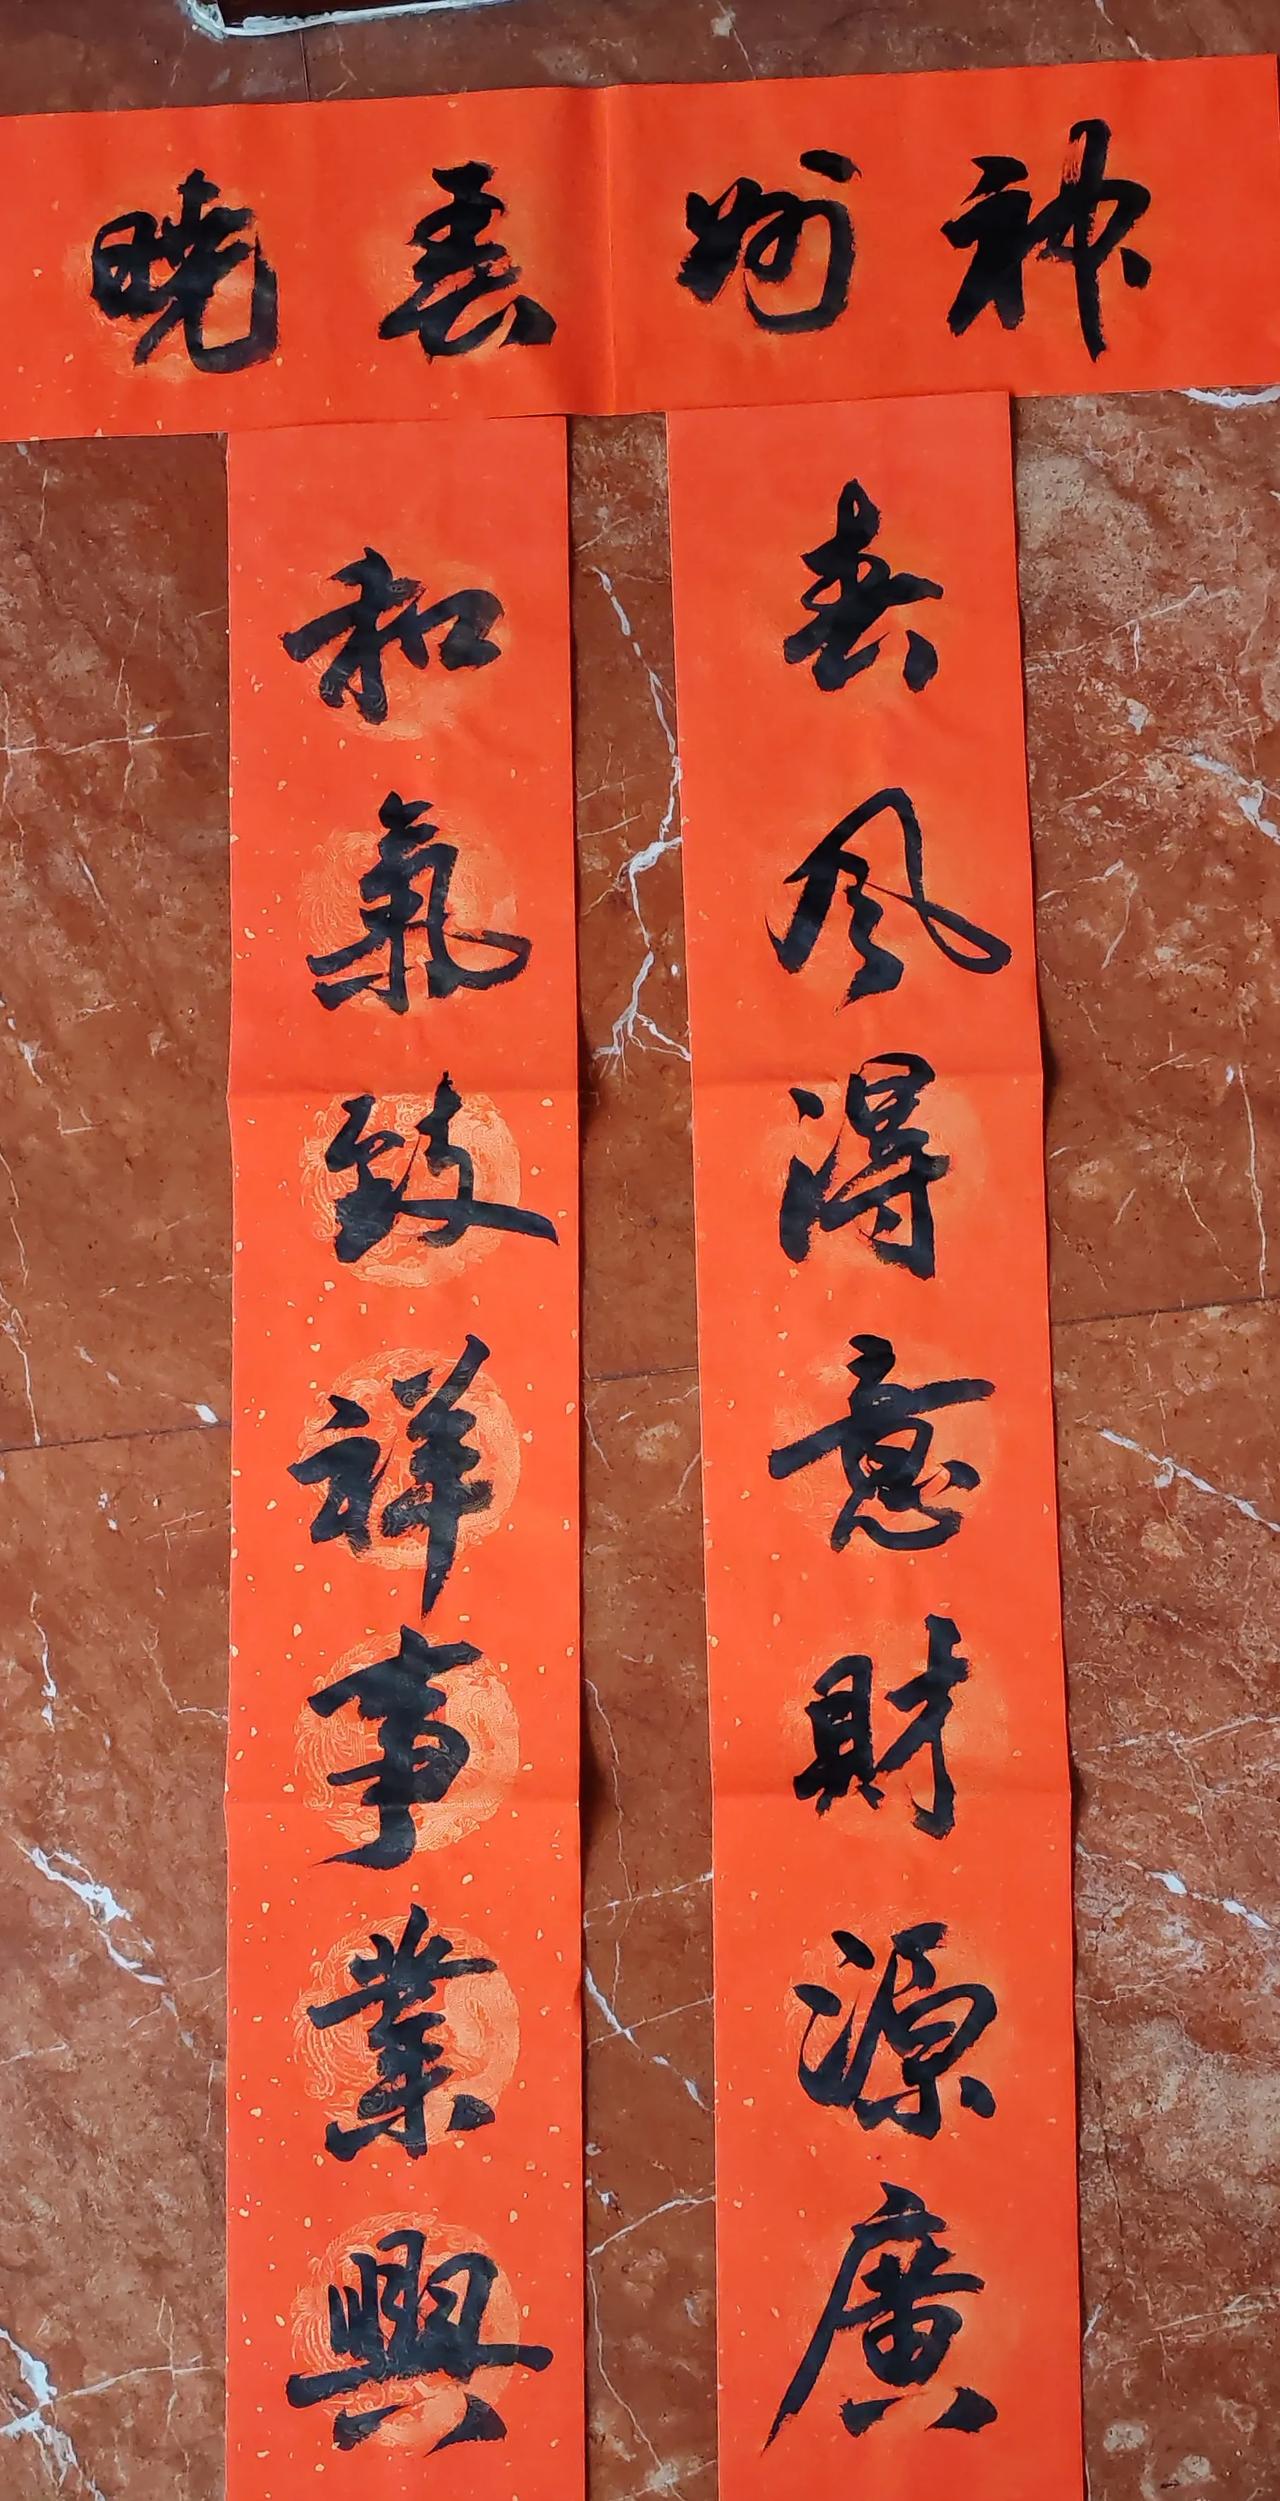 神州春曉
春風得意財源廣
和氣致祥事業興